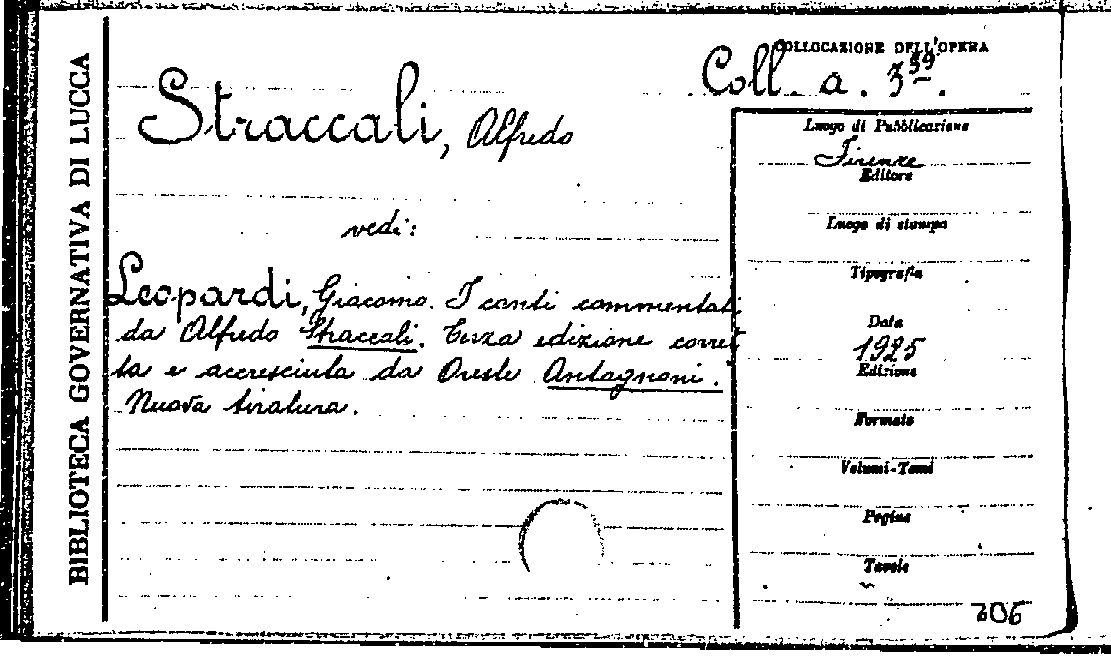 BIBLIOTECA GOVERNATIVA DI LUCCA
COLLOCAZIONE DELL'OPERA
Coll. a. 339.
Straccali, Alfredo
vedi:
Leopardi, Giacomo. I canti commentati
da Alfredo Straccali. Terza edizione corret
ta e accresciuta da Oreste Antognoni.
Nuova tiratura.
Luogo di Pubblicazione
Firenze
Editore
Luogo di stampa
Tipografia
Data
1925
Edizione
Formato
Volumi-Tomi
Pagine
Tavole
206